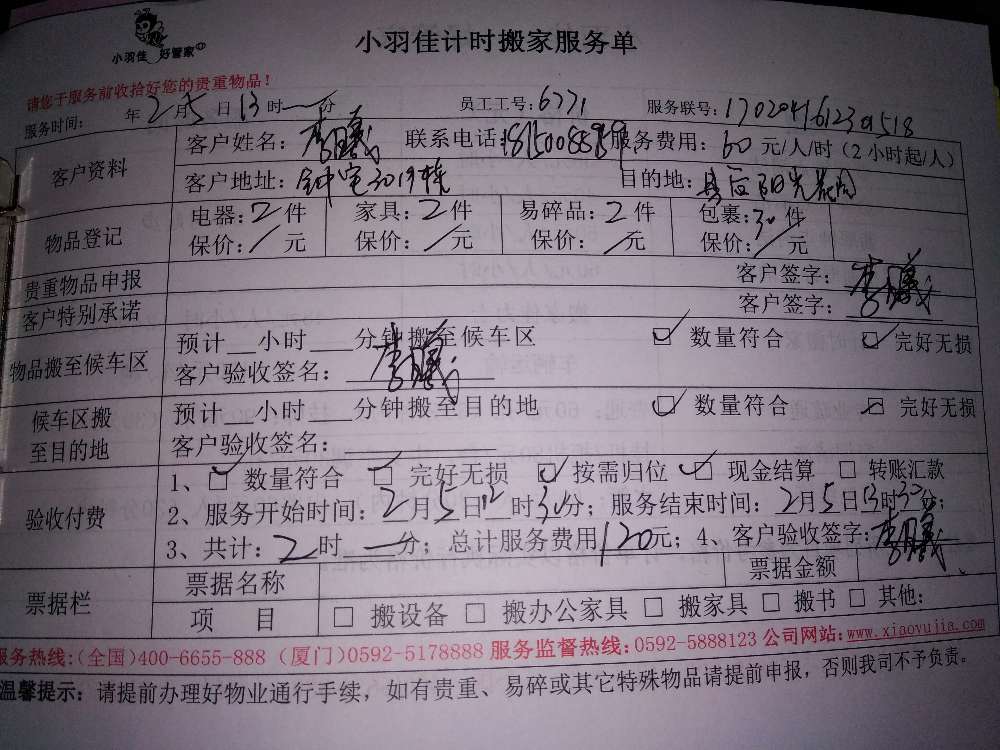 小羽佳 好管家
小羽佳计时搬家服务单
请您于服务前收拾好您的贵重物品！
服务时间： 年2月5日13时一份 员工工号：6771 服务联号：170204161230518
客户资料 客户姓名：李曦 联系电话： 服务费用：60元/人/时（2小时起/人）
客户地址：钟宅 目的地：县后阳光花园
物品登记 电器：2件 家具：2件 易碎品：2件 包裹：30件
保价：/元 保价：/元 保价：/元 保价：/元
贵重物品申报 客户签字：李曦
客户特别承诺 客户签字：
物品搬至候车区 预计__小时___分钟搬至候车区 ☑ 数量符合 ☑ 完好无损
客户验收签名：李曦
候车区搬至目的地 预计__小时___分钟搬至目的地 ☑ 数量符合 ☑ 完好无损
客户验收签名：
验收付费 1、☑ 数量符合 ☑ 完好无损 ☑ 按需归位 ☑ 现金结算 □ 转账汇款
2、服务开始时间：2月5日12时30分；服务结束时间：2月5日13时30分；
3、共计：2时一分；总计服务费用120元；4、客户验收签字：李曦
票据栏 票据名称 票据金额
项 目 □ 搬设备 □ 搬办公家具 □ 搬家具 □ 搬书 □ 其他：
服务热线：(全国)400-6655-888 (厦门)0592-5178888 服务监督热线：0592-5888123 公司网站：www.xiaoyujia.com
温馨提示：请提前办理好物业通行手续，如有贵重、易碎或其它特殊物品请提前申报，否则我司不予负责。